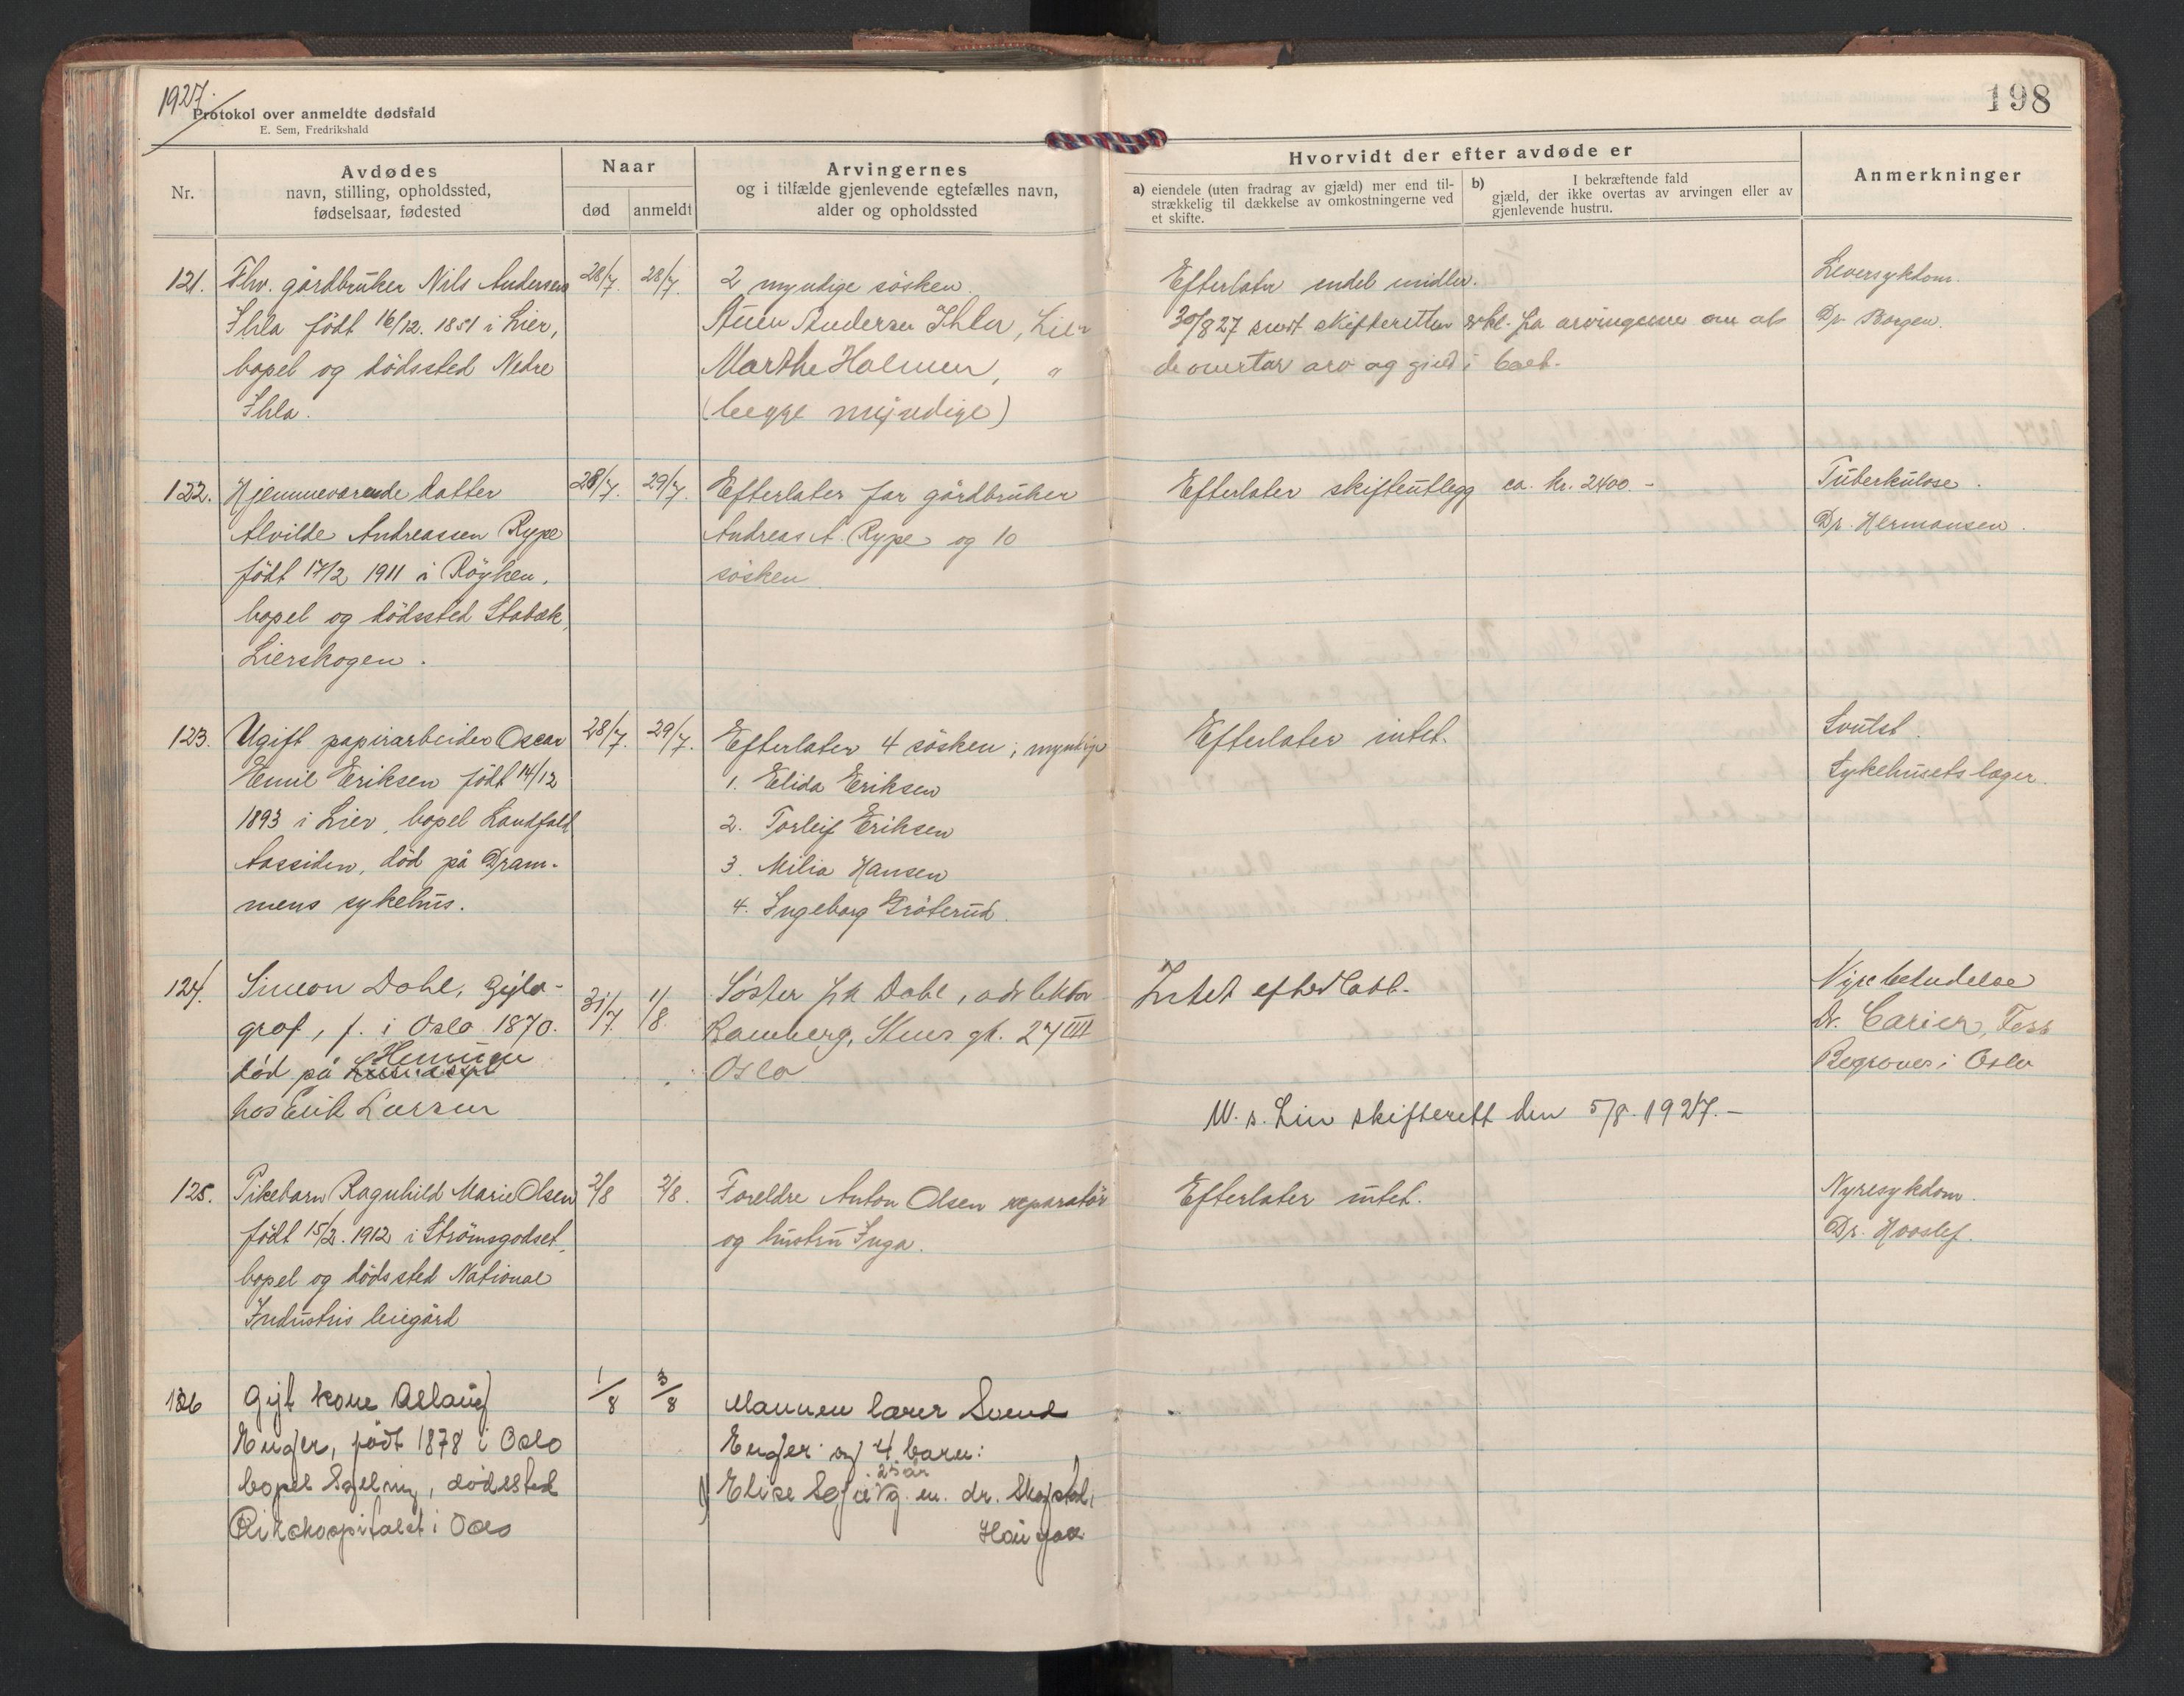 1927.
Protokol over anmeldte dødsfald
E. Sem, Fredrikshald
198
Nr.
Avdødes
navn, stilling, opholdssted,
fødselsaar, fødested
Naar
død
anmeldt
Arvingernes
og i tilfælde gjenlevende egtefælles navn,
alder og opholdssted
Hvorvidt der efter avdøde er
a) eiendele (uten fradrag av gjæld) mer end til-
strækkelig til dækkelse av omkostningerne ved
et skifte.
b) I bekræftende fald
gjæld, der ikke overtas av arvingen eller av
gjenlevende hustru.
Anmerkninger
121.
Fhv. gårdbruker Nils Andersen
Ihla født 16/12. 1851 i Lier,
bopel og dødssted Nedre
Ihla.
28/7.
28/7.
2 myndige søsken.
Andersen Ihla, Lier
Marthe Holmen, "
(begge myndige)
Efterlater endel midler.
30/8 27 skifteretten erkl. fra arvingerne om at
de overtar arv og gjeld i boet.
Leversykdom.
Dr. Borgen.
122.
Hjemmeværende datter
Alvilde Andreassen Rype
født 17/2 1911 i Röyken,
bopel og dödssted Stabæk,
Lierskogen.
28/7.
29/7.
Efterlater far gårdbruker
Andreas A. Rype og 10
søsken
Efterlater skifteutlegg ca. kr. 2400.-
Tuberkulose.
Dr. Hermansen.
123.
Ugift papirarbeider Oscar
Emil Eriksen født 14/12
1893 i Lier, bopel Landfald
Aassiden, död på Dram-
mens sykehus.
28/7.
29/7.
Efterlater 4 søsken, myndige
1. Elida Eriksen
2. Torleif Eriksen
3. Milia Hansen
4. Ingeborg Tröterud.
Efterlater intet.
Svulst.
Sykehusets læger.
124.
Simeon Dahl,
graf, f. i Oslo 1870.
død på
hos Erik Larsen
31/7
1/8.
Søster frk Dahl, adr lektor
Ramberg, gt. 27 III
Oslo
Intet efterlatt.
Nyrebetendelse
Dr. Carier,
Begraves i Oslo
W. s. Lier skifterett den 5/8. 1927.-
125.
Pikebarn Ragnhild Marie Olsen
født 15/2. 1912 i Strömsgodset,
bopel og dödssted National
Industris leiegård
2/8
2/8.
Foreldre Anton Olsen reparatör
og hustru Inga.
Efterlater intet.
Nyresykdom.
Dr. Hovslef.
126
Gift kone Aslaug
Enger, født 1878 i Oslo
bopel Sylling, dødssted
Rikshospitalet i Oslo
1/8
3/8
Mannen lærer Svend
Enger og 4 barn:
25 år
1) Elise g. m. dr.